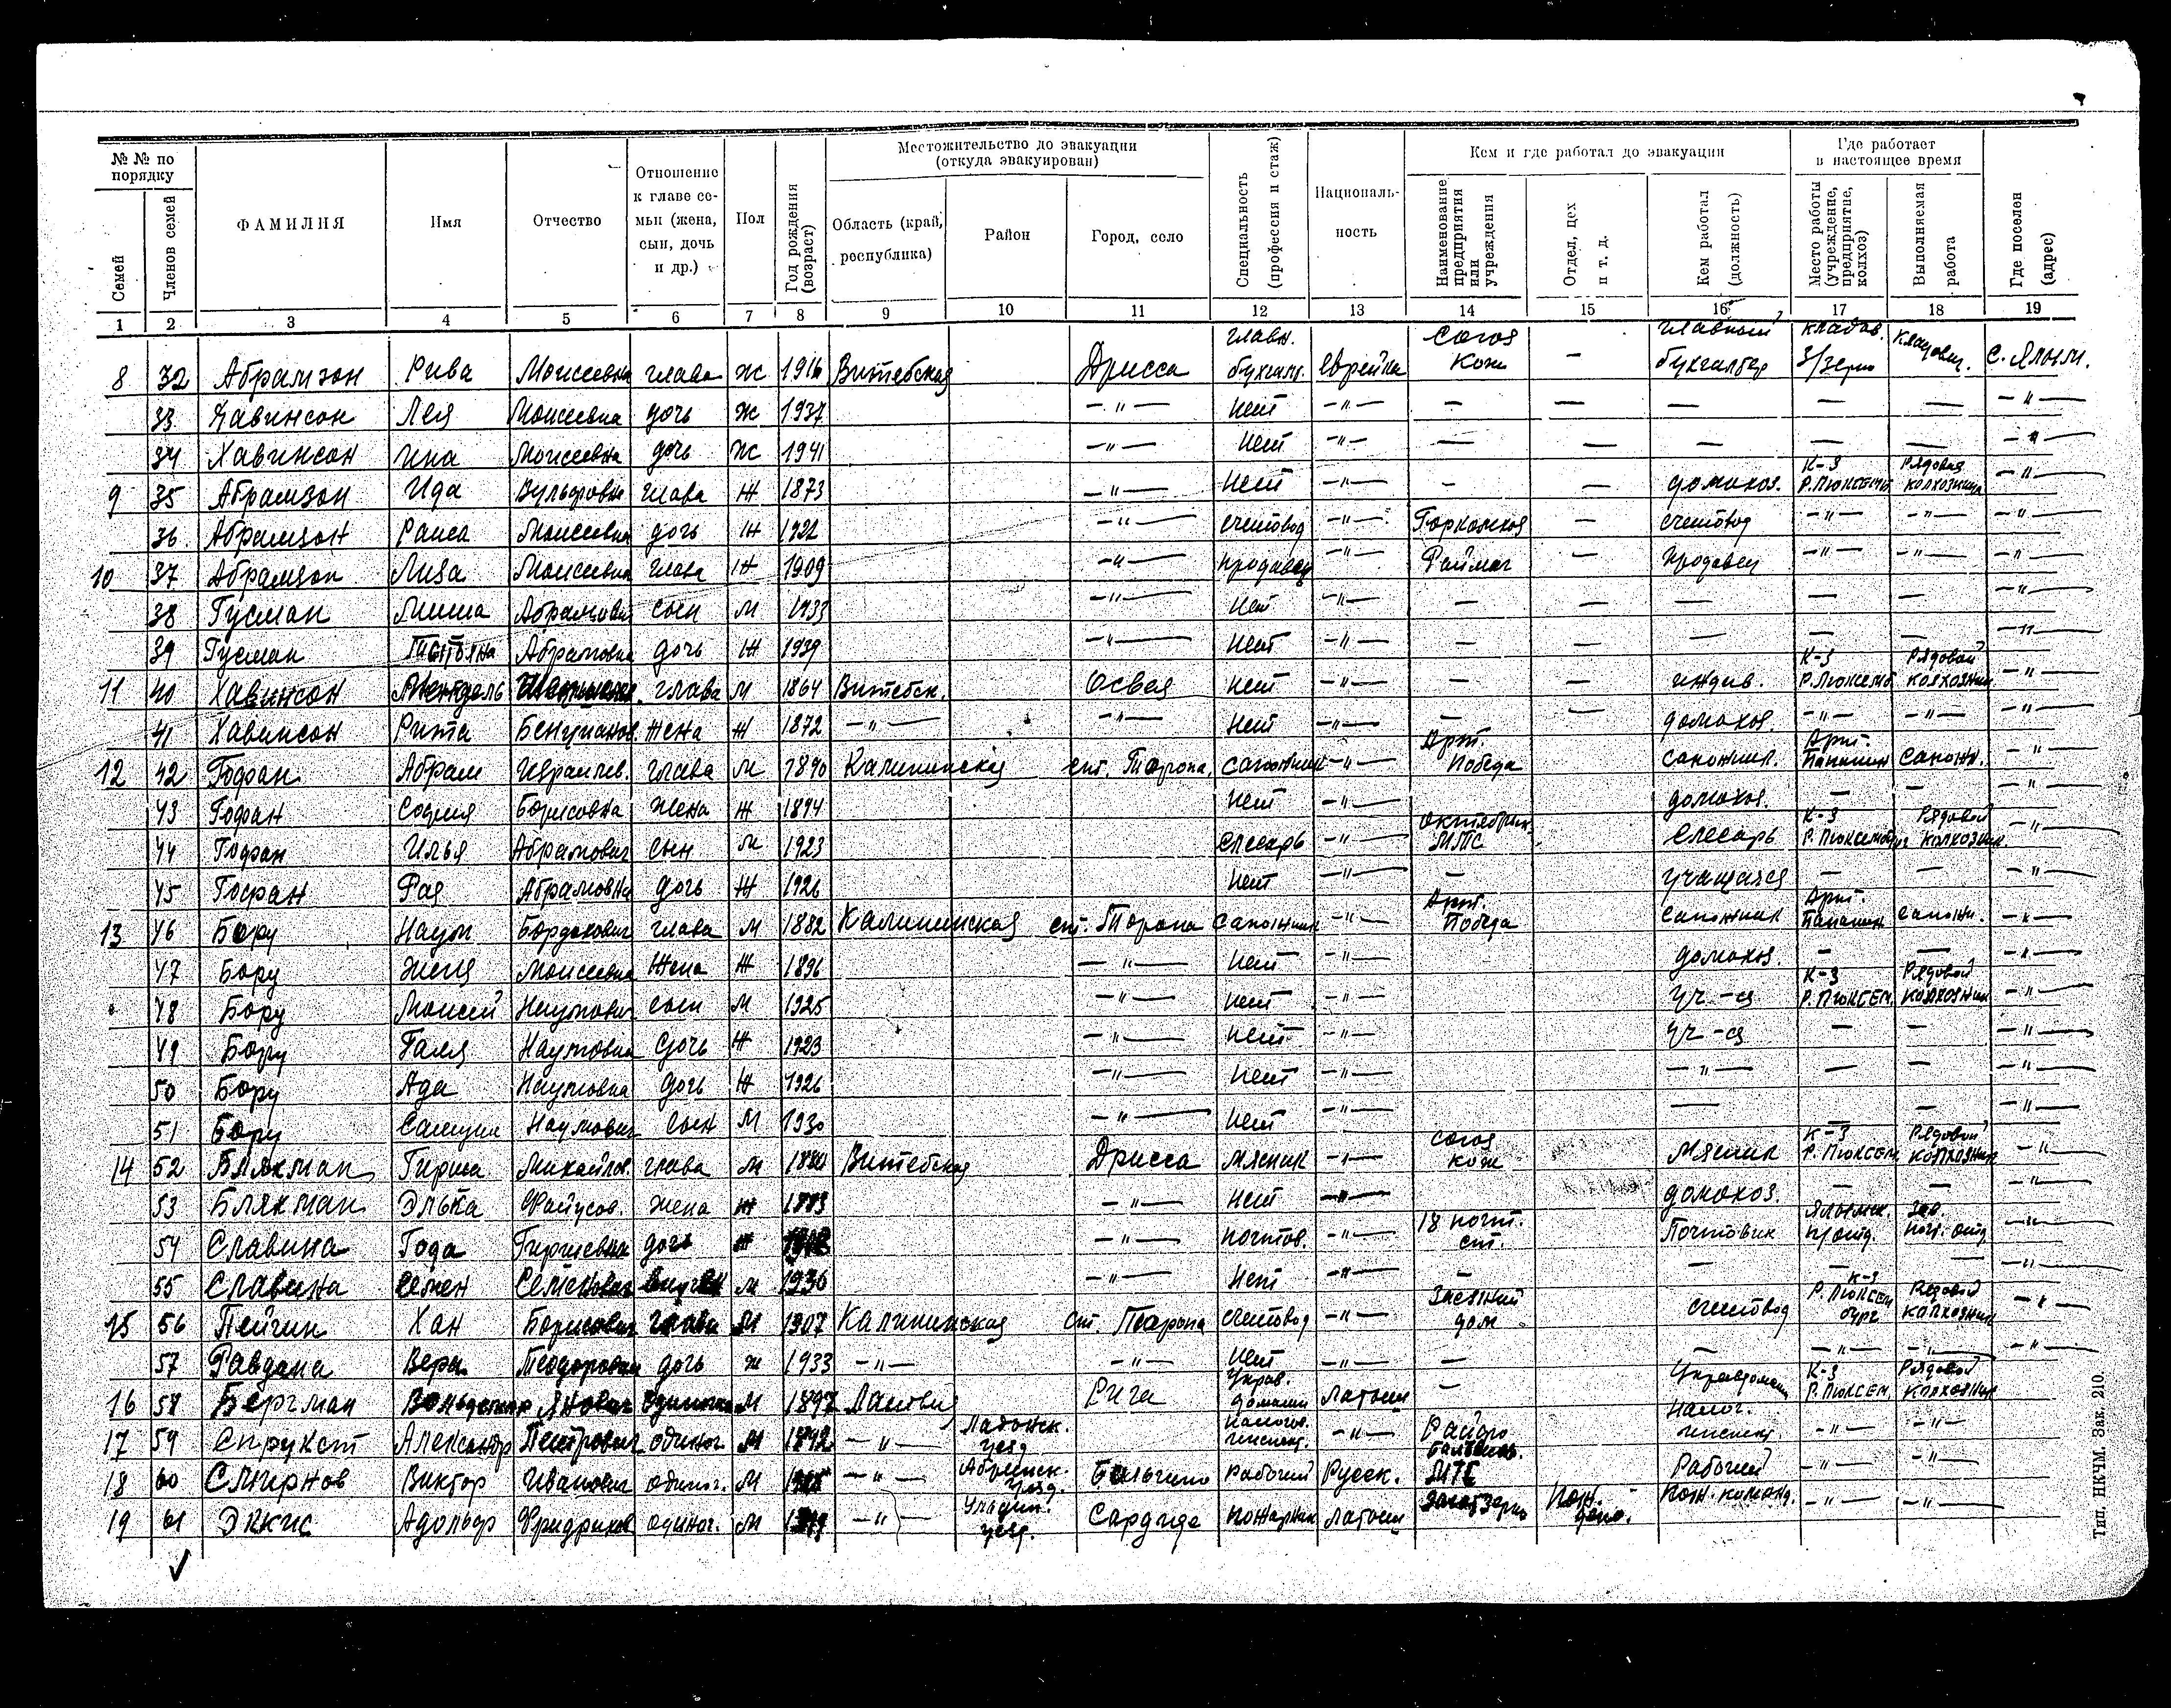 № № по порядку Местожительство до эвакуации (откуда эвакуирован) Кем и где работал до эвакуации Где работает в настоящее время
Семей Членов семей ФАМИЛИЯ Имя Отчество Отношение к главе семьи (жена, сын, дочь и др.) Пол Год рождения (возраст) Область (край, республика) Район Город, село Специальность (профессия и стаж) Националь-ность Наименование предприятия или учреждения Отдел, цех и т. д. Кем работал (должность) Место работы (учреждение, предприятие, колхоз) Выполняемая работа Где поселен (адрес)
1 2 3 4 5 6 7 8 9 10 11 12 13 14 15 16 17 18 19
8 32 Абрамзон Рива Моисеевна глава Ж 1916 Витебская Дрисса главн. бухгалт. еврейка Союз Кож — главный бухгалтер кладов. З/зерно с.
33 Хавинсон Лея Моисеевна дочь Ж 1937 —"— нет —"— — — — — — —"—
34 Хавинсон Ина Моисеевна дочь Ж 1941 —"— нет —"— — — — — — —"—
9 35 Абрамзон Ида Вульфовна глава Ж 1873 —"— нет —"— — — домохоз. К-з Р. Люксемб Рядовая колхозница —"—
36. Абрамзон Раиса Моисеевна дочь Ж 1922 —"— счетовод —"— — счетовод —"— —"— —"—
10 37 Абрамзон Лиза Моисеевна глава Ж 1909 —"— продавец —"— Раймаг — продавец —"— —"— —"—
38 Гусман Миша Абрамович сын М 1933 —"— нет —"— — — — — — —"—
39 Гусман Татьяна Абрамовна дочь Ж 1939 —"— нет —"— — — — — — —"—
11 40 Хавинсон глава М 1864 Витебск. Освея нет —"— — — иждив. К-з Р. Люксемб Рядовой колхозник —"—
41 Хавинсон Рита жена Ж 1872 —"— —"— нет —"— — — домохоз. —"— —"— —"—
12 42 Гофан Абрам Израилев. глава М 1890 Калининску ст. Торопа, сапожник —"— Арт. Победа сапожник. Арт. Папанин сапожн. —"—
43 Гофан София Борисовна жена Ж 1894 нет —"— домохоз. — — —"—
44 Гофан Илья Абрамович сын М 1923 слесарь —"— Октябрьск. МТС слесарь К-з Р. Люксембург Рядовой колхозник. —"—
45 Гофан Рая Абрамовна дочь Ж 1926 нет —"— — учащаяся — — —"—
13 46 Бору Наум глава М 1882 Калининская ст. Торопа сапожник —"— Арт. Победа сапожник Арт. Папанин сапожн. —"—
47 Бору Женя Моисеевна жена Ж 1896 —"— нет —"— домохоз. — — —"—
48 Бору Моисей Наумович сын М 1925 —"— нет —"— уч-ся К-з Р. Люксем. Рядовой колхозник —"—
49 Бору Галя Наумовна дочь Ж 1923 —"— нет —"— уч-ся — — —"—
50 Бору Ада Наумовна дочь Ж 1926 —"— нет —"— —"— — — —"—
51 Бору Наумович сын М 1930 —"— нет —"— — — — —"—
14 52 Бляхман Гирша Михайлов. глава М Витебская Дрисса мясник —"— Союз кож мясник К-з Р. Люксем. Рядовой колхозник —"—
53 Бляхман Элька жена Ж 1883 —"— нет —"— домохоз. — — —"—
54 Славина Года Гиршевна дочь Ж —"— почтов. —"— 18 почт. ст. Почтовик п/отд. Зав. поч. отд —"—
55 Славина Семен Семенович М 1936 —"— нет —"— — — — — —"—
15 56 Пейгин Хан Борисович глава М 1907 Калининская ст. Торопа счетовод —"— дом счетовод К-з Р. Люксем бург Рядовой колхозник —"—
57 Вера Теодоровна дочь ж 1933 —"— —"— нет —"— — — —"— —"— —"—
16 58 Бергман Янович одиночка М 1897 Латвия Рига Управ. домами латыш — Управдомами К-з Р. Люксем. Рядовой колхозник
17 59 Спрукст Александр Петрович одиноч. М 1892 —"— уезд налогов. инспект. —"— Райфо налог. инспект. —"— —"—
18 60 Смирнов Виктор Иванович одиноч. М —"— Абренск. уезд. рабочий Русск. МТС Рабочий —"— —"—
19 61 Экис Адольф Фридрихов одиноч. М —"— уезд. пожарник латыш Заготзерно Пож. депо. Пож. команд. —"— —"—
Тип. НКЧМ. Зак. 210.